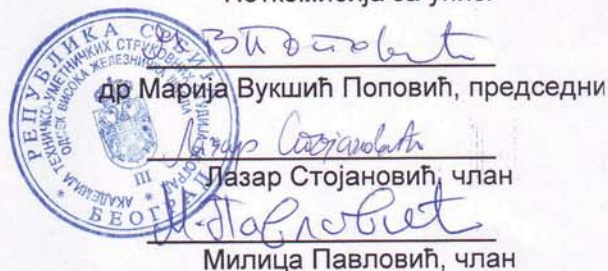 др Марија Вукшић Поповић, председни
Лазар Стојановић, члан
Милица Павловић, члан
РЕПУБЛИКА СРБИЈА
АКАДЕМИЈА ТЕХНИЧКО-УМЕТНИЧКИХ СТРУКОВНИХ СТУДИЈА БЕОГРАД
ОДСЕК ВИСОКА ЖЕЛЕЗНИЧКА ШКОЛА
III
БЕОГРАД